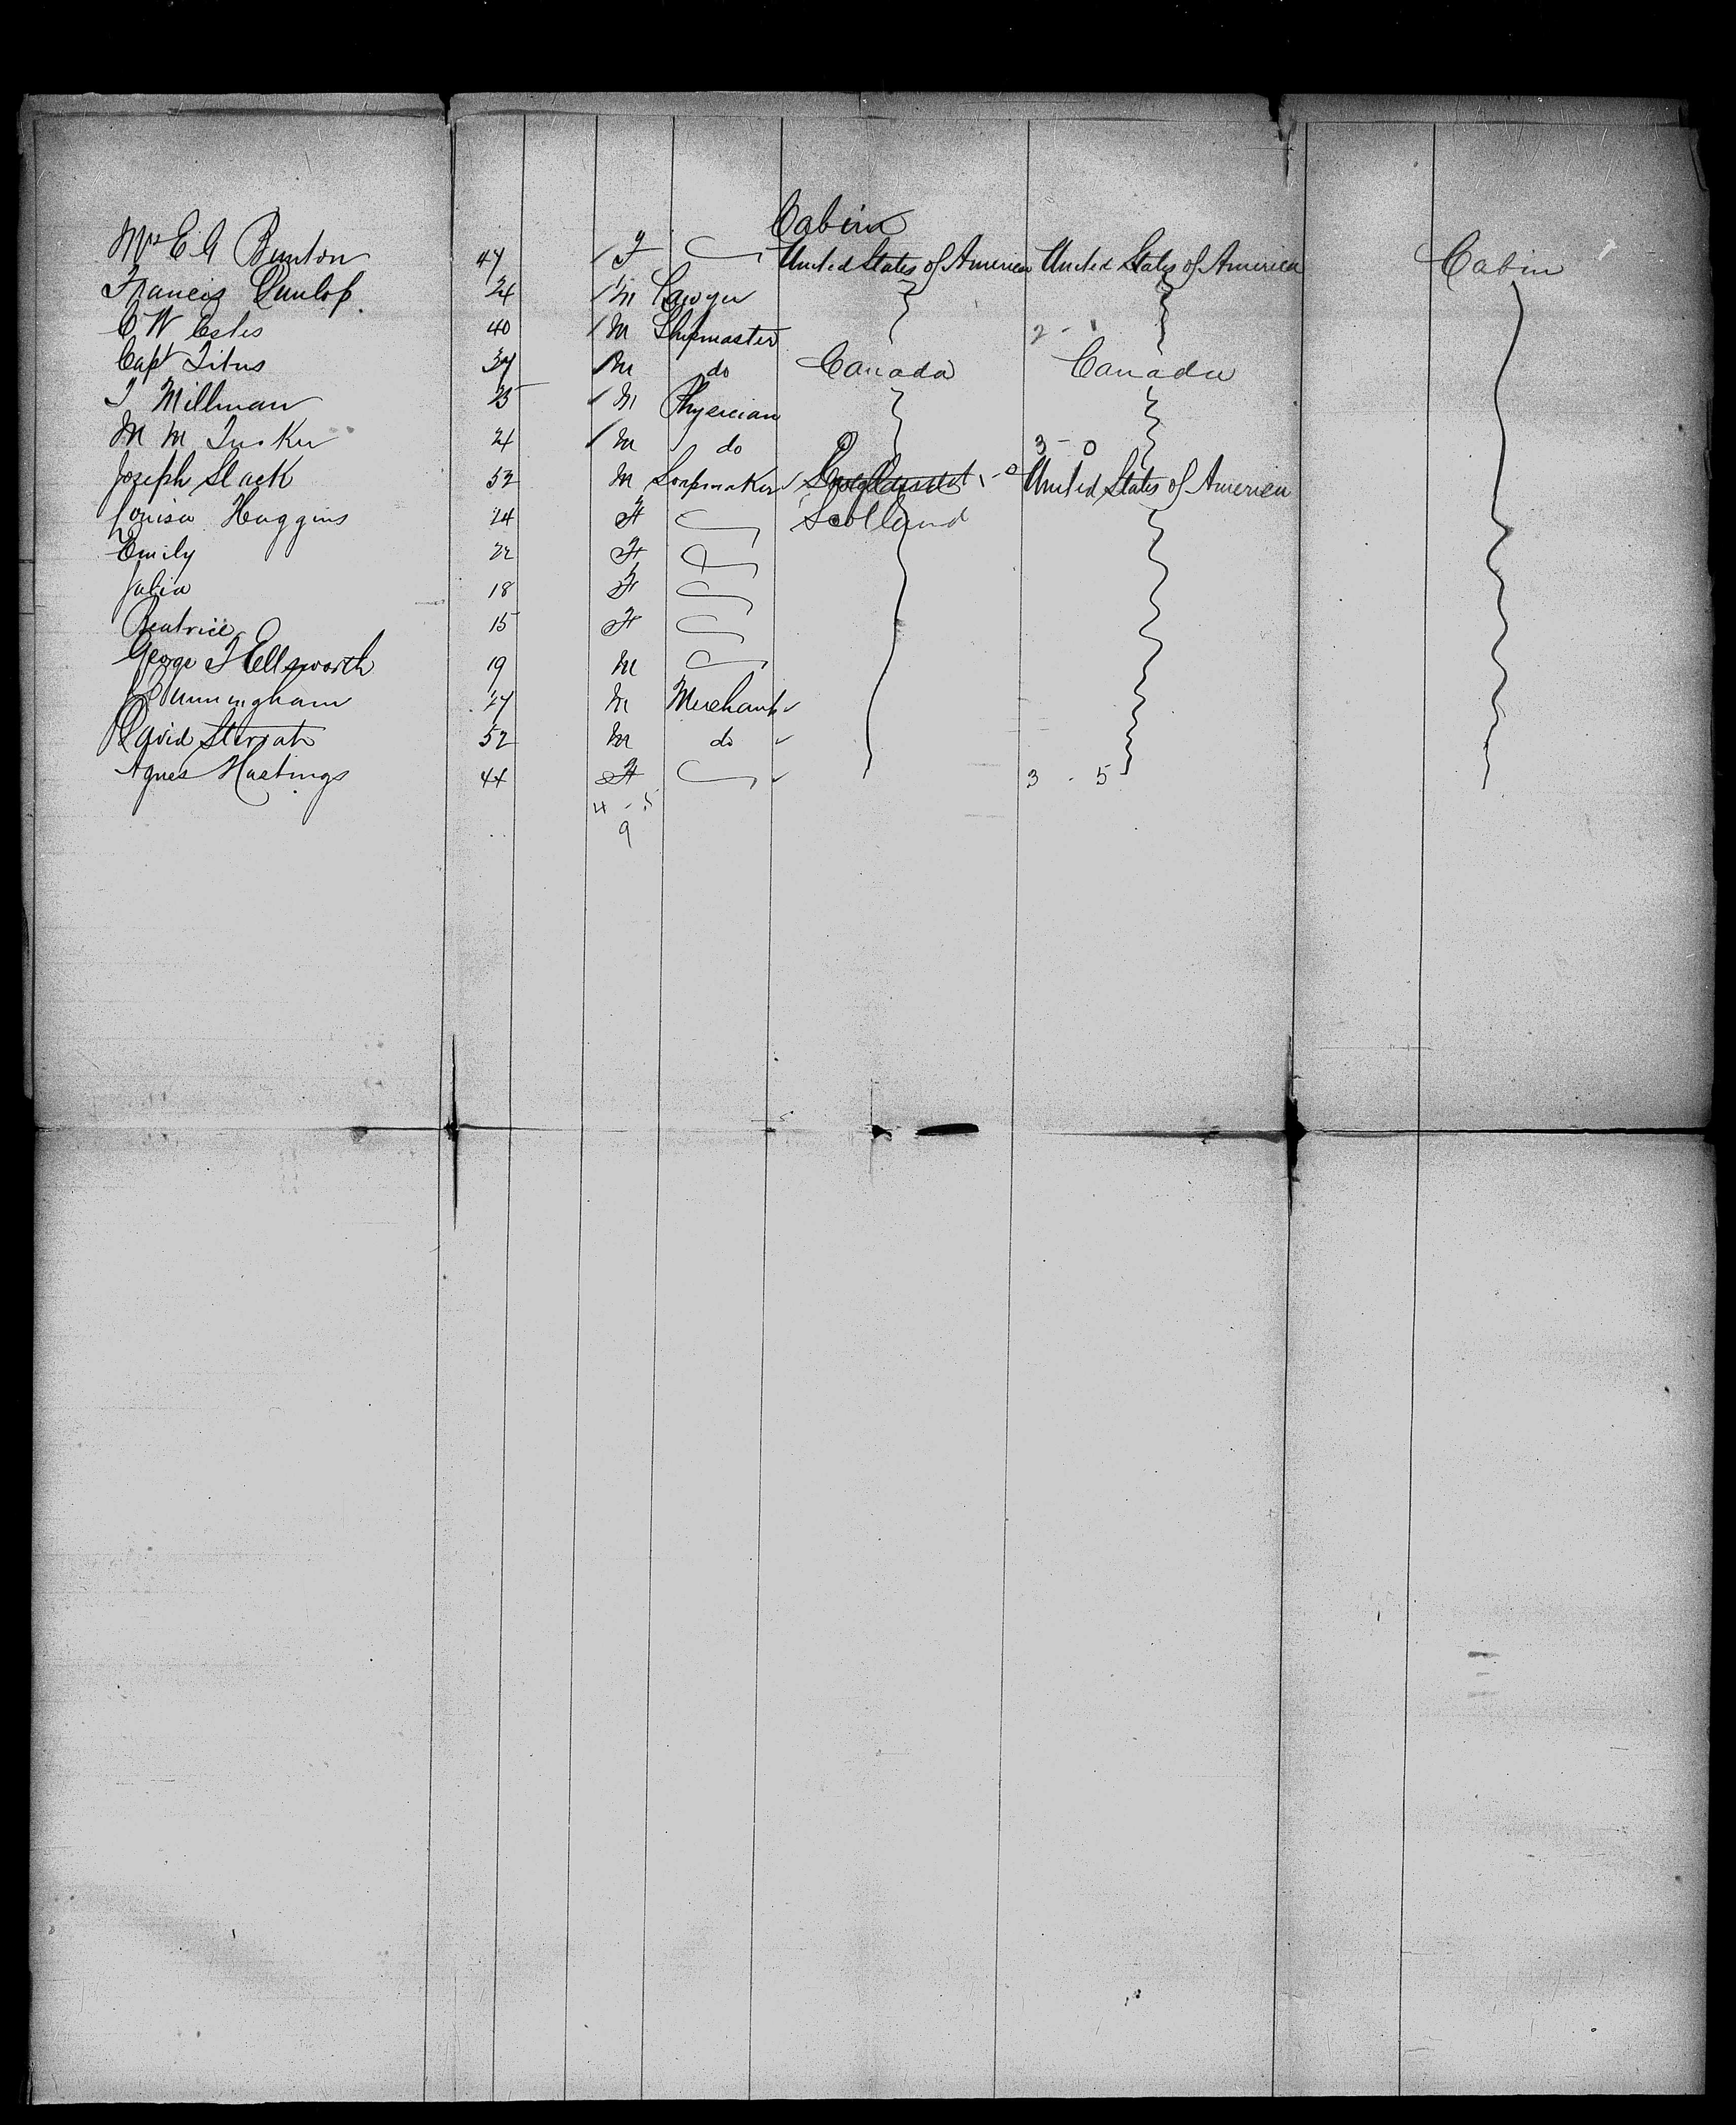 Cabin
Mrs E A Bunton 47 F United States of America United States of America Cabin
Francis Dunlop 24 M Lawyer
C W Estes 40 M Shipmaster 2 - 1
Capt Titus 37 M do Canada Canada
T Millman 25 M Physician
M M Tucker 24 M do 3 - 0
Joseph Slack 52 M Soapmaker England 1 - 0 United States of America
Louisa Huggins 24 F Scotland
Emily 22 F
Julia 18 F
Beatrice 15 F
George F Ellsworth 19 M
J Cunningham 27 M Merchant
David 52 M do
Agnes Hastings 44 F 3 - 5
4 - 5
9